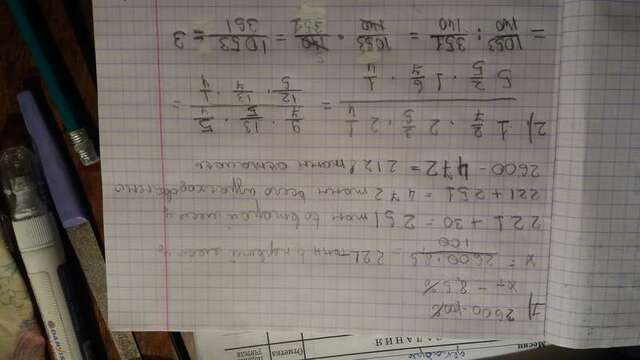 1) 2600-100%
x - 8,5%
x = 2600·8,5/100 = 221 тонн в первый месяц
221 + 30 = 251 тон во второй месяц
221 + 251 = 472 тонн всего израсходовано
2600 - 472 = 2128 тонн осталось
2) 1 2/7 · 2 3/5 · 2 1/4 / 5 2/5 · 1 6/7 · 1/4 = 9/7 · 13/5 · 5/4 / 12/5 · 13/7 · 1/4 =
= 1053/140 : 351/140 = 1053/140 · 140/351 = 1053/361 = 3
Месяц
ЗАДАНИЯ
Отметка